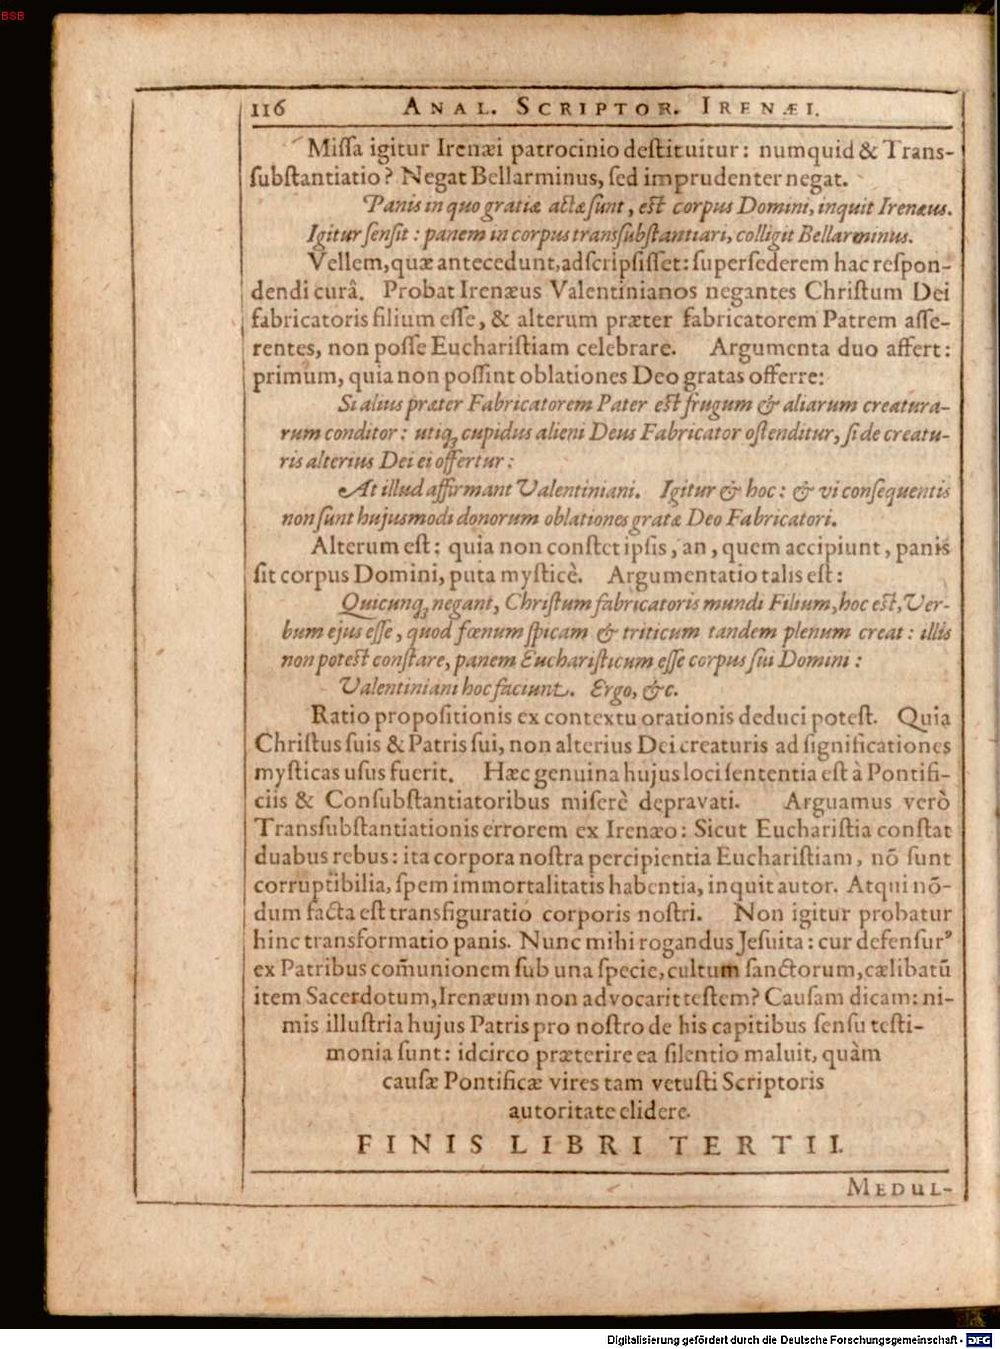 BSB
116 ANAL. SCRIPTOR. IRENÆI.
Miſſa igitur Irenæi patrocinio deſtituitur: numquid & Trans-
ſubſtantiatio? Negat Bellarminus, ſed imprudenter negat.
Panis in quo gratiæ actæ ſunt, eſt corpus Domini, inquit Irenæus.
Igitur ſenſit: panem in corpus transſubſtantiari, colligit Bellarminus.
Vellem, quæ antecedunt, adſcripſiſſet: ſuperſederem hac reſpon-
dendi curâ. Probat Irenæus Valentinianos negantes Chriſtum Dei
fabricatoris filium eſſe, & alterum præter fabricatorem Patrem aſſe-
rentes, non poſſe Euchariſtiam celebrare. Argumenta duo affert:
primum, quia non poſſint oblationes Deo gratas offerre:
Si alius præter Fabricatorem Pater eſt frugum & aliarum creatura-
rum conditor: utiq; cupidus alieni Deus Fabricator oſtenditur, ſi de creatu-
ris alterius Dei ei offertur:
At illud affirmant Valentiniani. Igitur & hoc: & vi conſequentis
non ſunt hujusmodi donorum oblationes gratæ Deo Fabricatori.
Alterum eſt: quia non conſtet ipſis, an, quem accipiunt, panis
ſit corpus Domini, puta myſticè. Argumentatio talis eſt:
Quicunq; negant, Chriſtum fabricatoris mundi Filium, hoc eſt, Ver-
bum ejus eſſe, quod fœnum ſpicam & triticum tandem plenum creat: illis
non poteſt conſtare, panem Euchariſticum eſſe corpus ſui Domini:
Valentiniani hoc faciunt. Ergo, &c.
Ratio propoſitionis ex contextu orationis deduci poteſt. Quia
Chriſtus ſuis & Patris ſui, non alterius Dei creaturis ad ſignificationes
myſticas uſus fuerit. Hæc genuina hujus loci ſententia eſt à Pontifi-
ciis & Conſubſtantiatoribus miſerè depravati. Arguamus verò
Transſubſtantiationis errorem ex Irenæo: Sicut Euchariſtia conſtat
duabus rebus: ita corpora noſtra percipientia Euchariſtiam, nō ſunt
corruptibilia, ſpem immortalitatis habentia, inquit autor. Atqui nō-
dum facta eſt transfiguratio corporis noſtri. Non igitur probatur
hinc transformatio panis. Nunc mihi rogandus Jeſuita: cur defenſurꝰ
ex Patribus com̄unionem ſub una ſpecie, cultum ſanctorum, cælibatū
item Sacerdotum, Irenæum non advocarit teſtem? Cauſam dicam: ni-
mis illuſtria hujus Patris pro noſtro de his capitibus ſenſu teſti-
monia ſunt: idcirco præterire ea ſilentio maluit, quàm
cauſæ Pontificæ vires tam vetuſti Scriptoris
autoritate elidere.
FINIS LIBRI TERTII.
MEDUL-
Digitalisierung gefördert durch die Deutsche Forschungsgemeinschaft - DFG